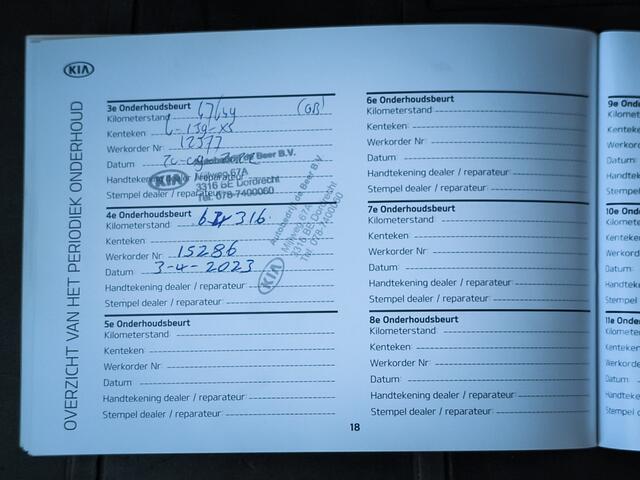 KIA
OVERZICHT VAN HET PERIODIEK ONDERHOUD
3e Onderhoudsbeurt
Kilometerstand (GB)
Kenteken
Werkorder Nr: 12377
Datum
Handtekening dealer / reparateur
Stempel dealer / reparateur
Autobedrijf de Beer B.V.
KIA Mijlweg 67A
3316 BE Dordrecht
Tel. 078-7400060
4e Onderhoudsbeurt
Kilometerstand 316
Kenteken
Werkorder Nr: 15286
Datum 3-4-2023
Handtekening dealer / reparateur
Stempel dealer / reparateur:
Autobedrijf de Beer B.V.
KIA Mijlweg 67A
3316 BE Dordrecht
Tel. 078-7400060
5e Onderhoudsbeurt
Kilometerstand
Kenteken:
Werkorder Nr:
Datum
Handtekening dealer / reparateur:
Stempel dealer / reparateur:
6e Onderhoudsbeurt
Kilometerstand
Kenteken:
Werkorder Nr:
Datum:
Handtekening dealer / reparateur:
Stempel dealer / reparateur:
7e Onderhoudsbeurt
Kilometerstand
Kenteken:
Werkorder Nr:
Datum:
Handtekening dealer / reparateur:
Stempel dealer / reparateur:
8e Onderhoudsbeurt
Kilometerstand
Kenteken:
Werkorder Nr:
Datum:
Handtekening dealer / reparateur:
Stempel dealer / reparateur:
18